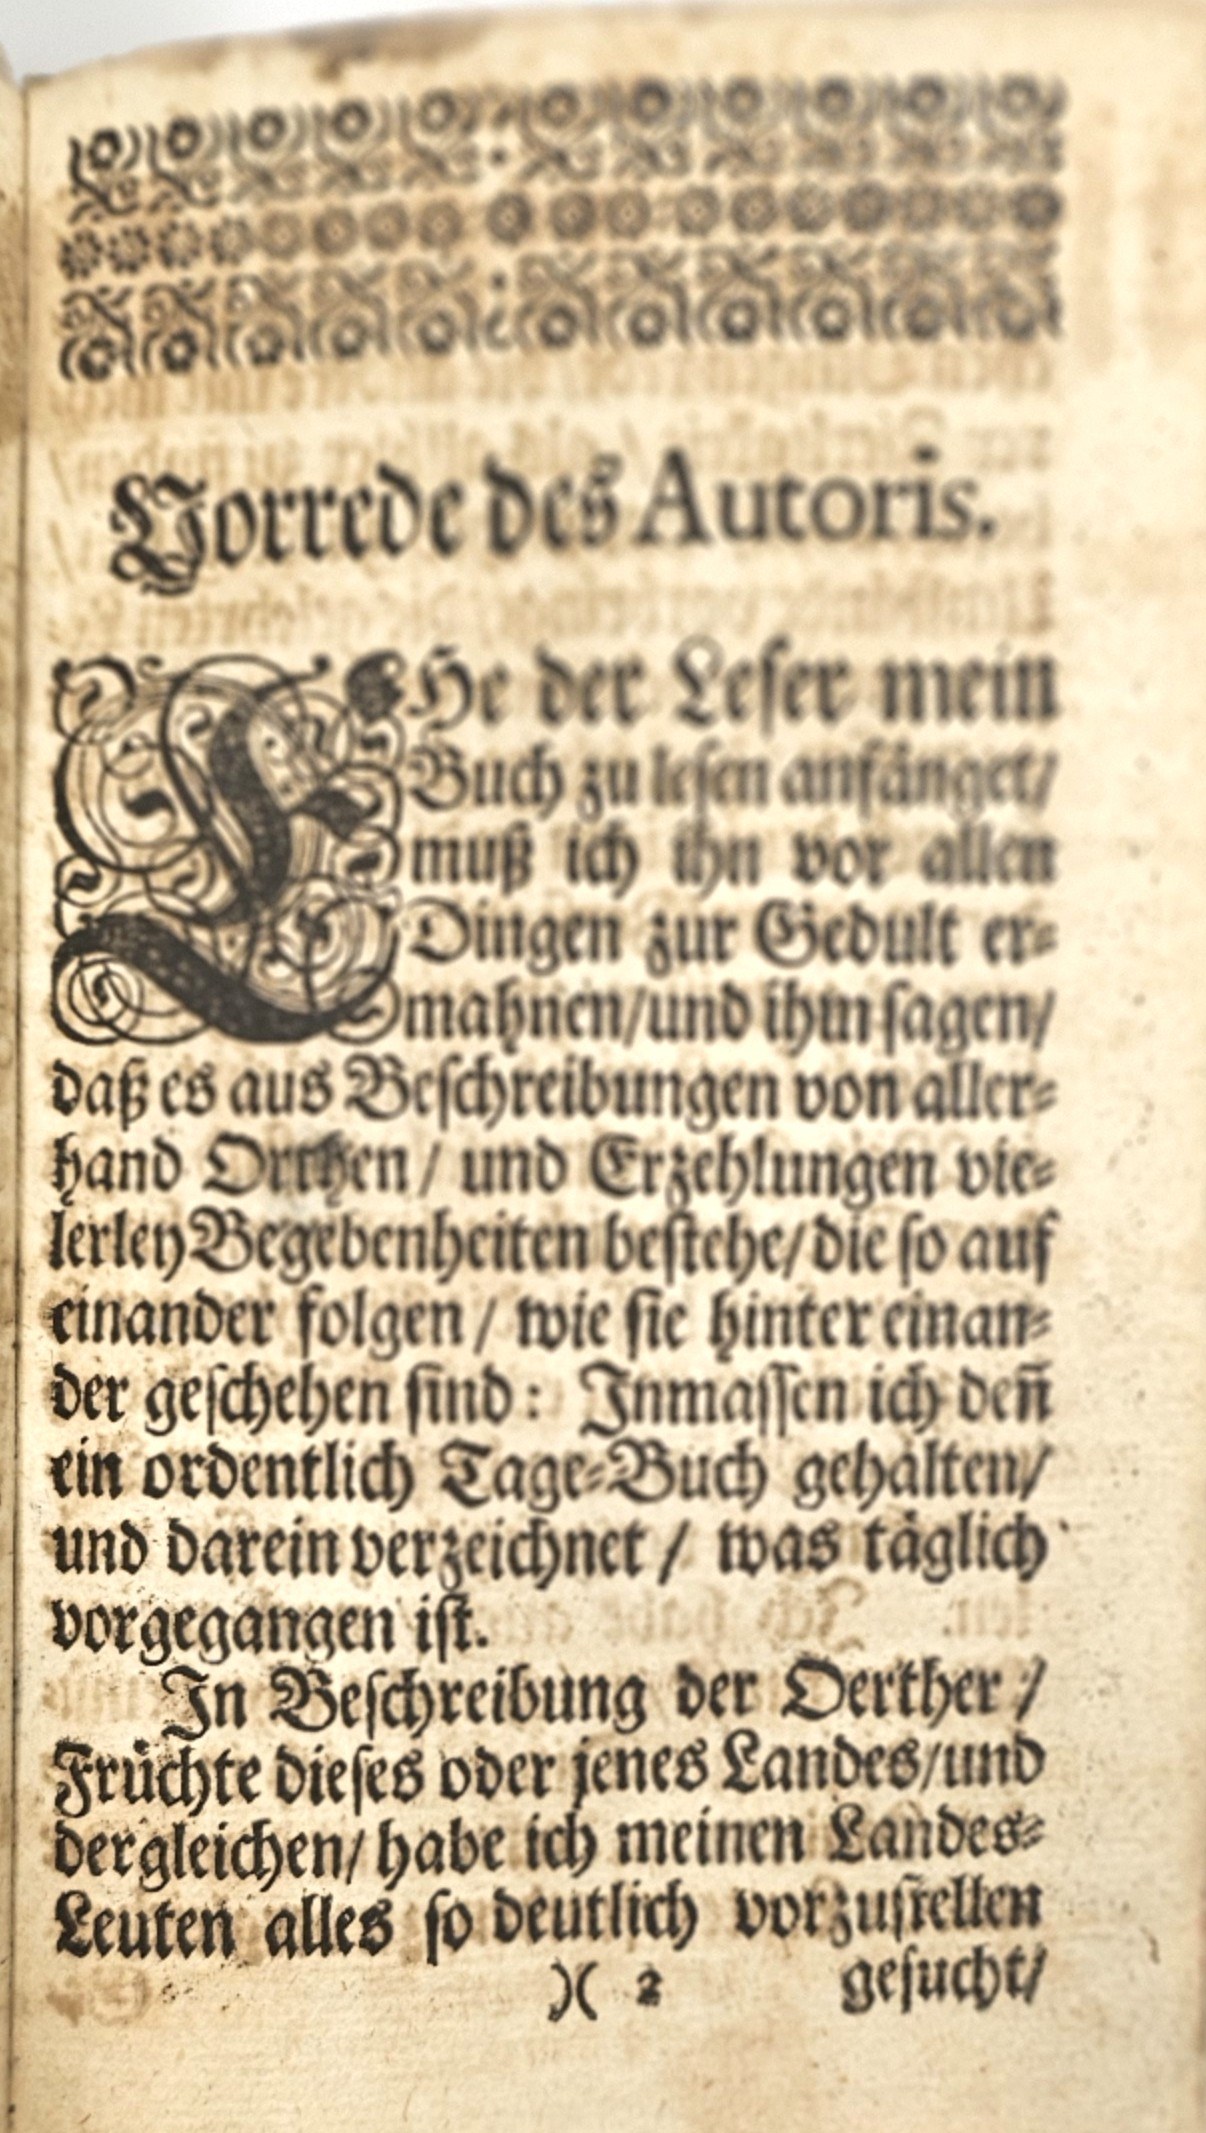 Vorrede des Autoris.
EHe der Leser mein
Buch zu lesen anfänget/
muß ich ihn vor allen
Dingen zur Gedult er-
mahnen/und ihm sagen/
daß es aus Beschreibungen von aller-
hand Orthen/ und Erzehlungen vie-
lerley Begebenheiten bestehe/die so auf
einander folgen/ wie sie hinter einan-
der geschehen sind: Inmassen ich deñ
ein ordentlich Tage-Buch gehalten/
und darein verzeichnet/ was täglich
vorgegangen ist.
In Beschreibung der Oerther/
Früchte dieses oder jenes Landes/und
dergleichen/habe ich meinen Landes-
Leuten alles so deutlich vorzustellen
)( 2 gesucht/